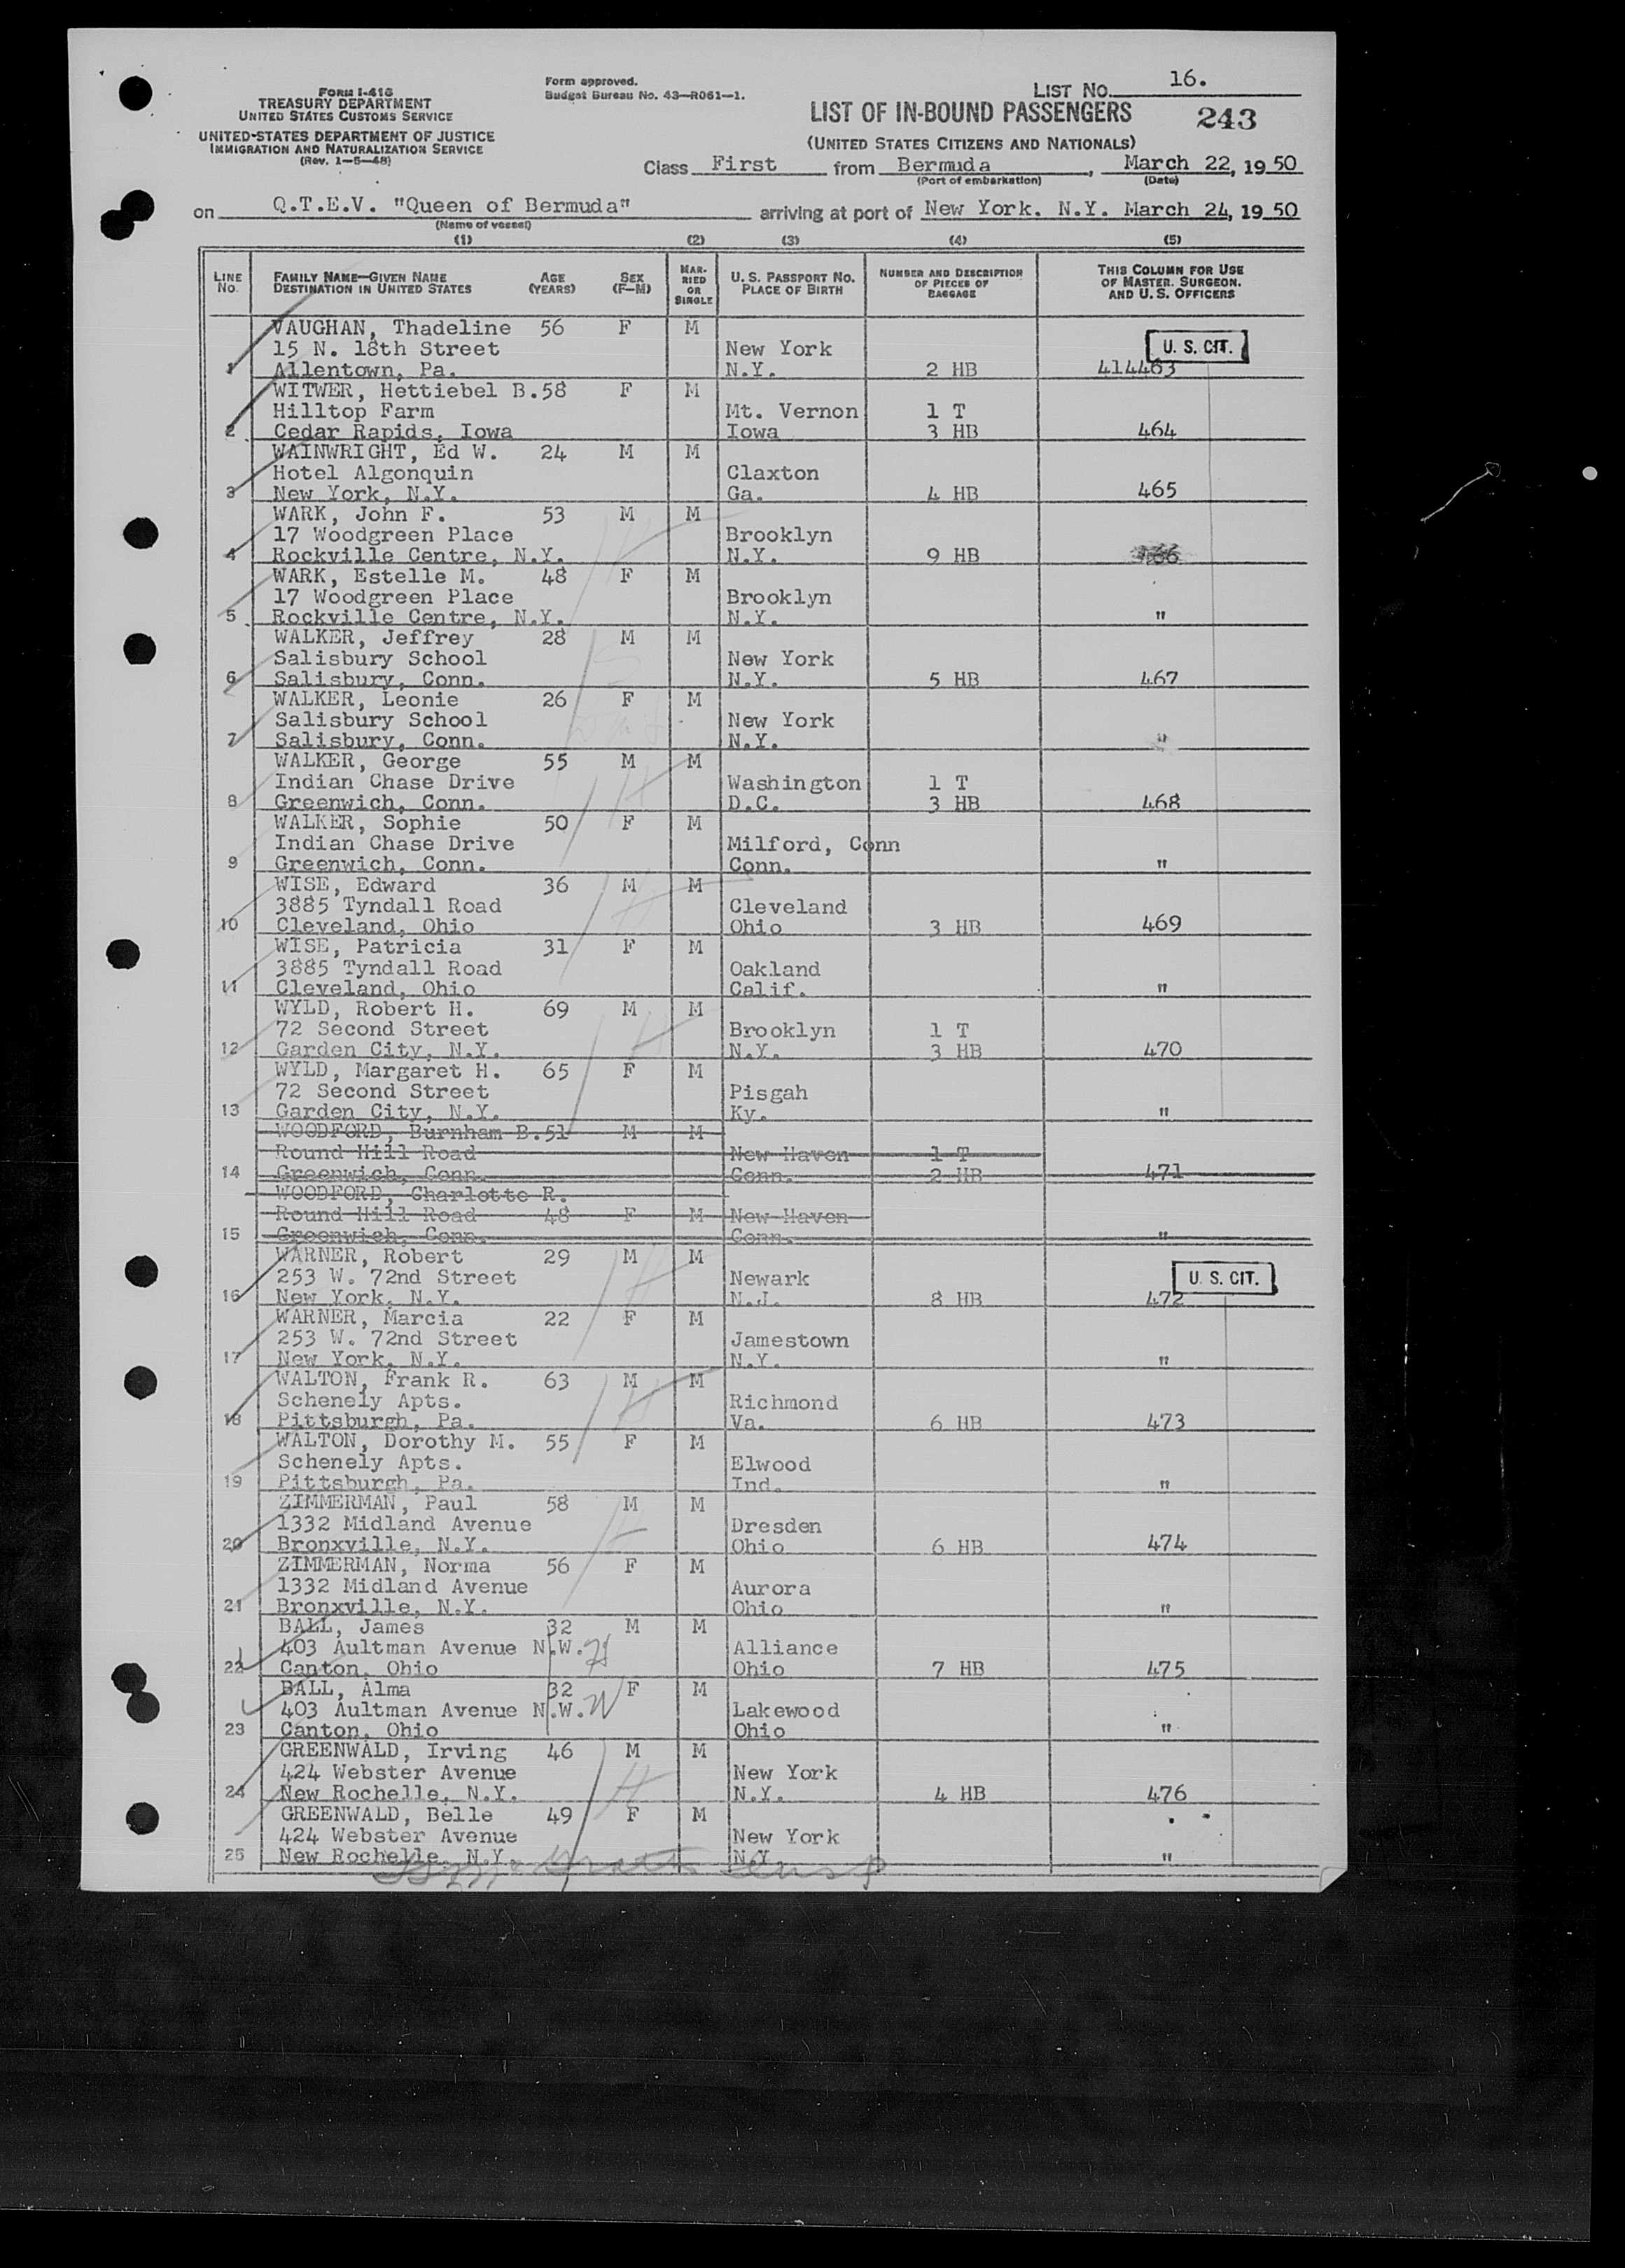 Form I-418
TREASURY DEPARTMENT
UNITED STATES CUSTOMS SERVICE
UNITED STATES DEPARTMENT OF JUSTICE
IMMIGRATION AND NATURALIZATION SERVICE
(Rev. 1-5-48)
Form approved.
Budget Bureau No. 43—R061—1.
LIST NO. 16.
LIST OF IN-BOUND PASSENGERS 243
(UNITED STATES CITIZENS AND NATIONALS)
Class First from Bermuda, March 22, 19 50
(Port of embarkation) (Date)
on Q.T.E.V. "Queen of Bermuda" arriving at port of New York. N.Y. March 24, 19 50
(Name of vessel)
(1) (2) (3) (4) (5)
LINE No. FAMILY NAME—GIVEN NAME DESTINATION IN UNITED STATES AGE (YEARS) SEX (F—M) MARRIED OR SINGLE U. S. PASSPORT NO. PLACE OF BIRTH NUMBER AND DESCRIPTION OF PIECES OF BAGGAGE THIS COLUMN FOR USE OF MASTER. SURGEON. AND U. S. OFFICERS
VAUGHAN, Thadeline 56 F M
15 N. 18th Street New York U. S. CIT.
1 Allentown, Pa. N.Y. 2 HB 414463
WITWER, Hettiebel B. 58 F M
Hilltop Farm Mt. Vernon 1 T
2 Cedar Rapids, Iowa Iowa 3 HB 464
WAINWRIGHT, Ed W. 24 M M
Hotel Algonquin Claxton
3 New York, N.Y. Ga. 4 HB 465
WARK, John F. 53 M M
17 Woodgreen Place Brooklyn
4 Rockville Centre, N.Y. N.Y. 9 HB
WARK, Estelle M. 48 F M
17 Woodgreen Place Brooklyn
5 Rockville Centre, N.Y. N.Y. "
WALKER, Jeffrey 28 M M
Salisbury School New York
6 Salisbury, Conn. N.Y. 5 HB 467
WALKER, Leonie 26 F M
Salisbury School New York
7 Salisbury, Conn. N.Y. "
WALKER, George 55 M M
Indian Chase Drive Washington 1 T
8 Greenwich, Conn. D.C. 3 HB 468
WALKER, Sophie 50 F M
Indian Chase Drive Milford, Conn
9 Greenwich, Conn. Conn. "
WISE, Edward 36 M M
3885 Tyndall Road Cleveland
10 Cleveland, Ohio Ohio 3 HB 469
WISE, Patricia 31 F M
3885 Tyndall Road Oakland
11 Cleveland, Ohio Calif. "
WYLD, Robert H. 69 M M
72 Second Street Brooklyn 1 T
12 Garden City, N.Y. N.Y. 3 HB 470
WYLD, Margaret H. 65 F M
72 Second Street Pisgah
13 Garden City, N.Y. Ky. "
WOODFORD, Burnham B. 51 M M
Round Hill Road New Haven 1 T
14 Greenwich, Conn. Conn. 2 HB 471
WOODFORD, Charlotte R.
Round Hill Road 48 F M New Haven
15 Greenwich, Conn. Conn. "
WARNER, Robert 29 M M
253 W. 72nd Street Newark U. S. CIT.
16 New York, N.Y. N.J. 8 HB 472
WARNER, Marcia 22 F M
253 W. 72nd Street Jamestown
17 New York, N.Y. N.Y. "
WALTON, Frank R. 63 M M
Schenely Apts. Richmond
18 Pittsburgh, Pa. Va. 6 HB 473
WALTON, Dorothy M. 55 F M
Schenely Apts. Elwood
19 Pittsburgh, Pa. Ind. "
ZIMMERMAN, Paul 58 M M
1332 Midland Avenue Dresden
20 Bronxville, N.Y. Ohio 6 HB 474
ZIMMERMAN, Norma 56 F M
1332 Midland Avenue Aurora
21 Bronxville, N.Y. Ohio "
BALL, James 32 M M
403 Aultman Avenue N.W. H Alliance
22 Canton, Ohio Ohio 7 HB 475
BALL, Alma 32 F M
403 Aultman Avenue N.W. W Lakewood
23 Canton, Ohio Ohio "
GREENWALD, Irving 46 M M
424 Webster Avenue New York
24 New Rochelle, N.Y. N.Y. 4 HB 476
GREENWALD, Belle 49 F M
424 Webster Avenue New York
25 New Rochelle, N.Y. N.Y. "